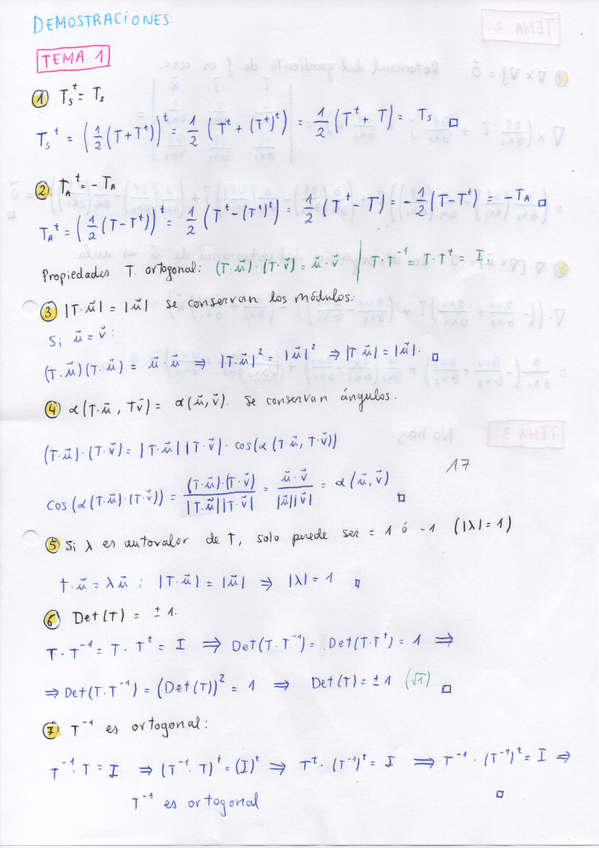 DEMOSTRACIONES:
TEMA 1
① T_S^t = T_S
T_S^t = (1/2 (T+T^t))^t = 1/2 (T^t + (T^t)^t) = 1/2 (T^t + T) = T_S □
② T_A^t = -T_A
T_A^t = (1/2 (T-T^t))^t = 1/2 (T^t - (T^t)^t) = 1/2 (T^t - T) = -1/2 (T-T^t) = -T_A □
Propiedades T. ortogonal: (T·u⃗)·(T·v⃗) = u⃗·v⃗ | T·T^-1 = T·T^t = I
③ |T·u⃗| = |u⃗| Se conservan los módulos:
Si u⃗ = v⃗:
(T·u⃗)(T·u⃗) = u⃗·u⃗ ⇒ |T·u⃗|^2 = |u⃗|^2 ⇒ |T·u⃗| = |u⃗|. □
④ α(T·u⃗, Tv⃗) = α(u⃗,v⃗). Se conservan ángulos.
(T·u⃗)·(T·v⃗) = |T·u⃗||T·v⃗|·cos(α(T·u⃗, T·v⃗))
17
cos(α(T·u⃗)·(T·v⃗)) = (T·u⃗)·(T·v⃗) / |T·u⃗||T·v⃗| = u⃗·v⃗ / |u⃗||v⃗| = α(u⃗,v⃗) □
⑤ Si λ es autovalor de T, solo puede ser = 1 ó -1 (|λ|=1)
T·u⃗ = λu⃗ ; |T·u⃗| = |u⃗| ⇒ |λ| = 1 □
⑥ Det(T) = ±1.
T·T^-1 = T·T^t = I ⇒ Det(T·T^-1) = Det(T·T^t) = 1 ⇒
⇒ Det(T·T^-1) = (Det(T))^2 = 1 ⇒ Det(T) = ±1 (√1) □
⑦ T^-1 es ortogonal:
T^-1·T = I ⇒ (T^-1·T)^t = (I)^t ⇒ T^t·(T^-1)^t = I ⇒ T^-1·(T^-1)^t = I ⇒
T^-1 es ortogonal □